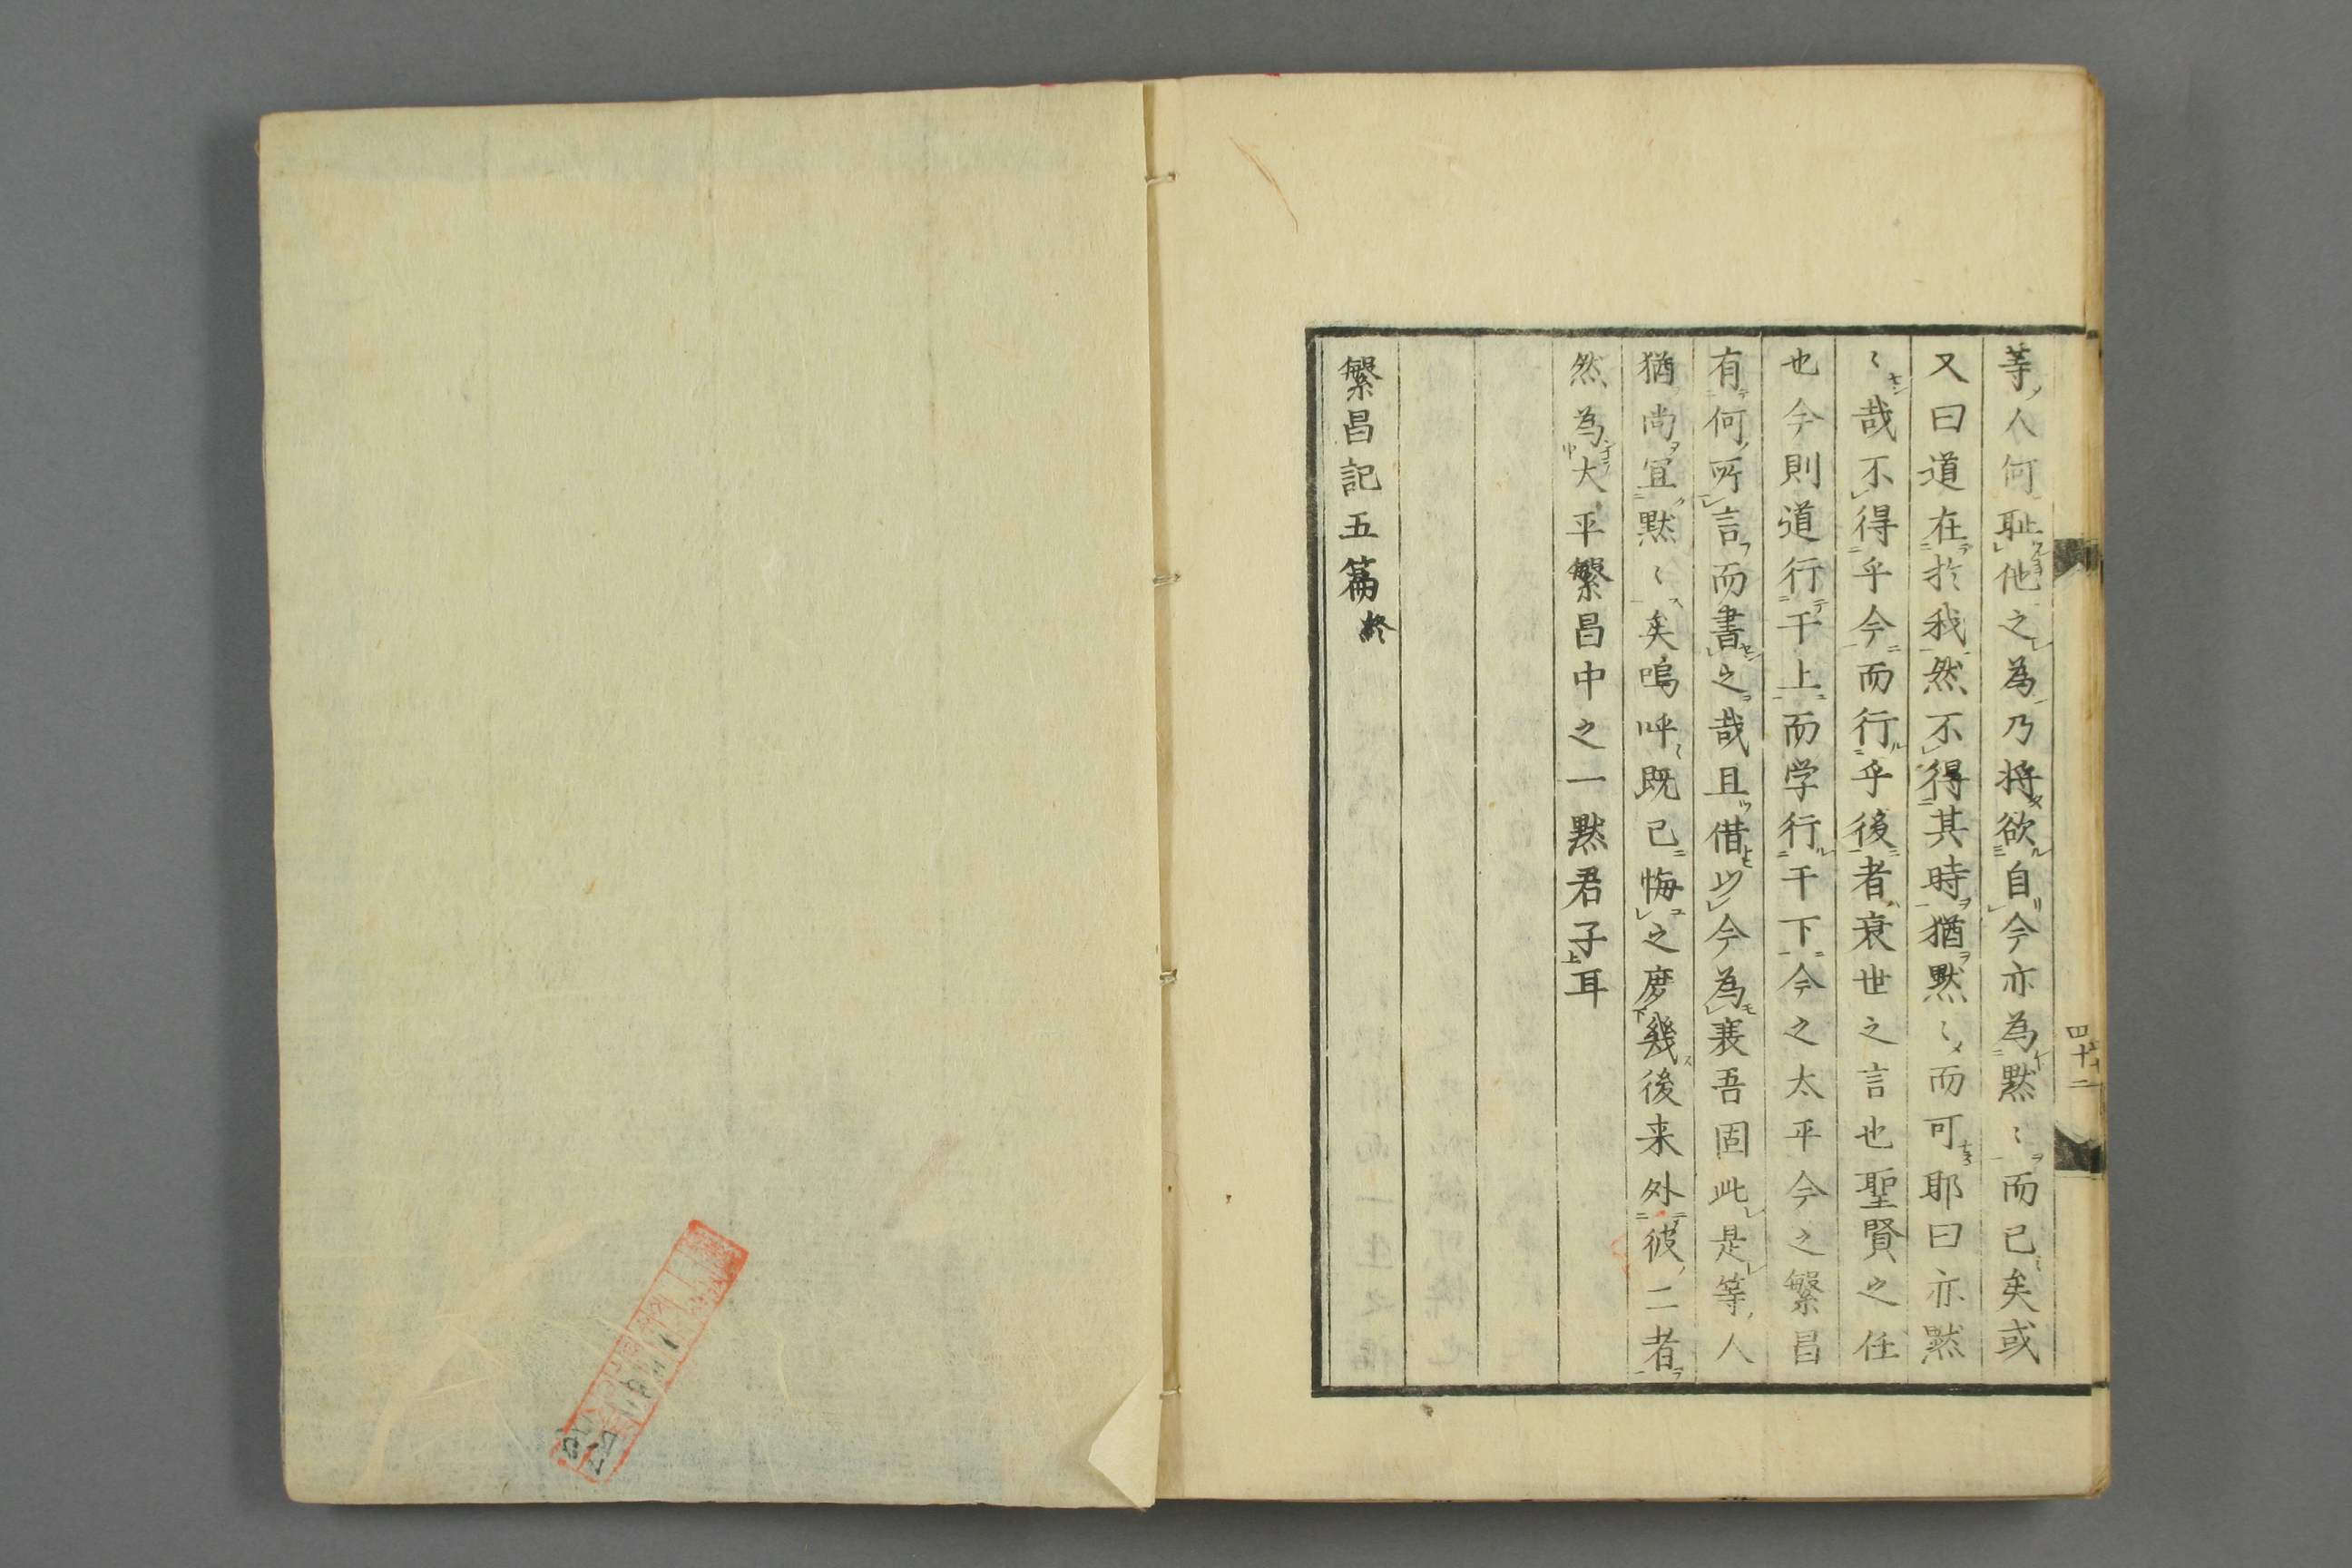 等人何耻他之為乃将欲自今亦為黙〻而已矣或
又曰道在於我然不得其時猶黙〻而可耶曰亦黙
〻哉不得乎今而行乎後者衰世之言也聖賢之任
也今則道行于上而学行于下今之太平今之繁昌
有何所言而書之哉且借以今為衰吾固此是等人
猶尚宜黙〻矣嗚呼既已悔之庶幾後来外彼二者
然為大平繁昌中之一黙君子耳
繁昌記五篇終
四十二